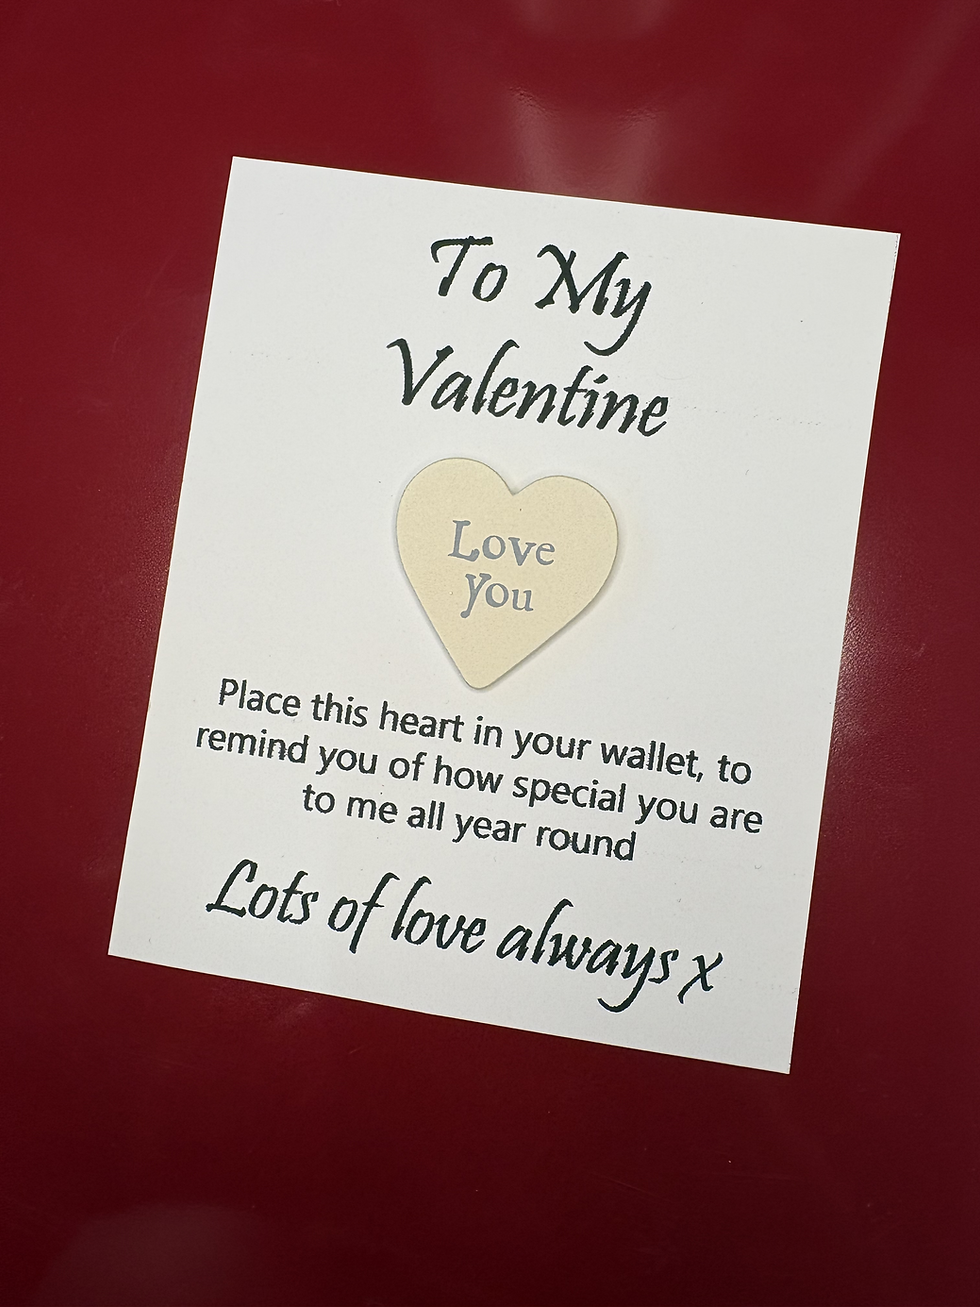 To My
Valentine
Love
you
Place this heart in your wallet, to
remind you of how special you are
to me all year round
Lots of love always x